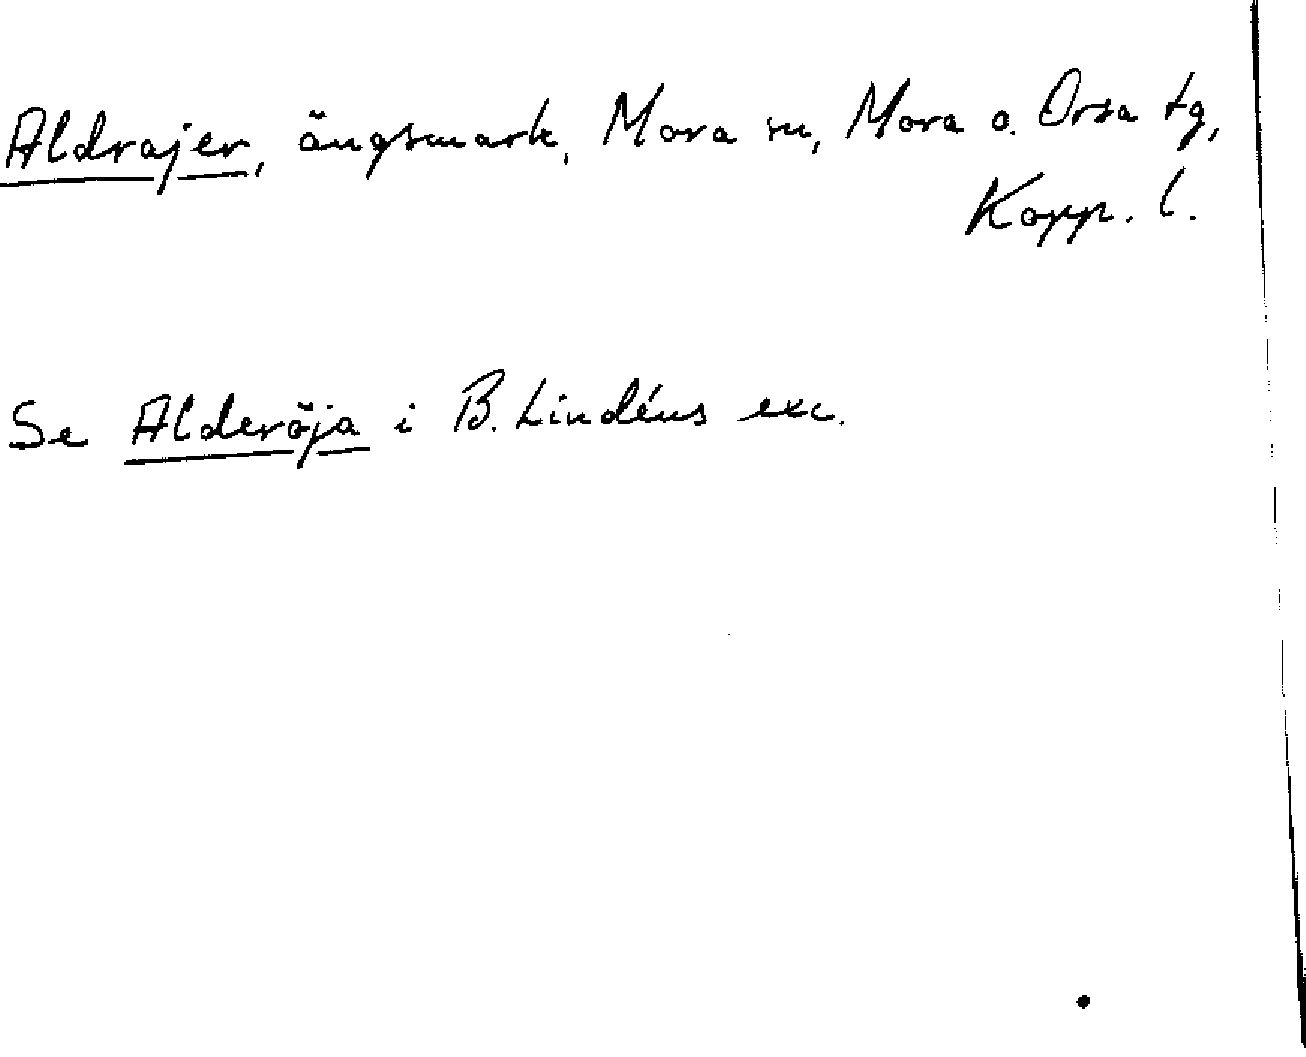 Aldrajer, ängsmark, Mora sn, Mora o. Orsa tg,
Kopp. l.
Se Alderöja i B. Lindéns exc.